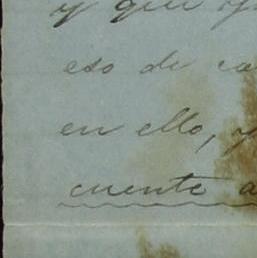 y que
eso de
en ello, y
cuente a